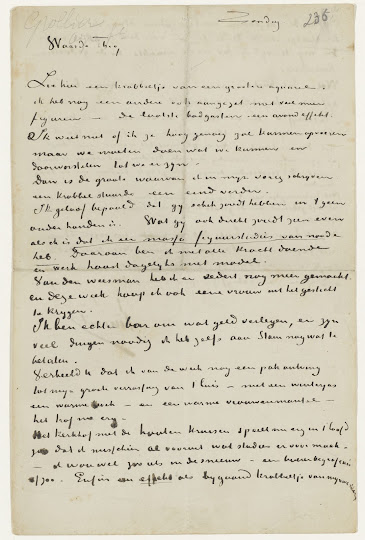 Zondag
236
Waarde Theo,
Zie hier een krabbeltje van een grootere aquarel.
ik heb nog een andere ook aangezet met veel meer
figuren — de laatste badgasten — een avondeffekt.
Ik weet niet of ik je hoog genoeg zal kunnen opvoeren
maar we moeten doen wat we kunnen en
doorworstelen tot we er zyn.
Dan is de groote waarvan ik in myn vorig schryven
een krabbel stuurde een eind verder.
Ik geloof bepaald dat gy gelyk zoudt hebben in 't geen
onderhanden is. Wat gy ook direkt goed zien even
als ik is dat ik een massa figuurstudies van noode
heb. Daaraan ben ik met alle kracht doende
en werk haast dagelyks met model.
Van den weesman heb ik er zedert nog meer gemaakt
en deze week hoop ik ook eene vrouw uit het gesticht
te krygen.
Ik ben echter bar om wat geld verlegen, en zyn
veel dingen noodig, ik heb zelfs aan Stam nog wat te
betalen.
Verbeeld U dat ik van de week nog een pak ontving
tot myn groote verrassing van t' huis — met een winterjas
een warme broek — en een warme vrouwenmantel —
het trof me erg.
Het kerkhof met de houten kruisen speelt me erg in t hoofd
dat ik misschien al vooruit wat studies er voor maak —
ik wou wel zoo iets in de sneeuw — een boerebegrafenis
of zoo. Enfin een effekt als bygaand krabbeltje van